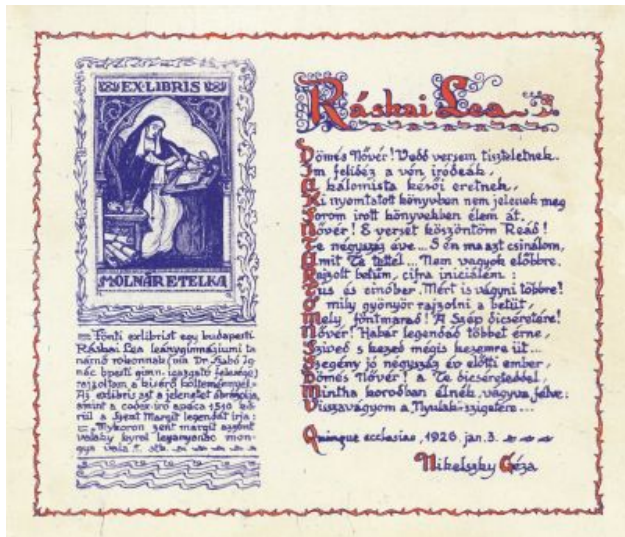 EX·LIBRIS
MOLNÁR ETELKA
Fönti exlibrist egy budapesti
Ráskai Lea leánygimnáziumi ta
nárnő rokonnak (ma Dr. Szabó Ig
nác bpesti gimn. igazgató felesége)
rajzoltam a kisérő költeménnyel.
Az exlibris azt a jelenetet ábrázolja,
amint a codex-író apáca 1510 kö-
rül a Szent Margit legendát írja:
Mykoron zent margit azzont
valahy kyral leanyanac mon-
gya vala
Ráskai Lea
Dömés Nővér! Vedd versem tiszteletnek.
Im felidéz a vén íródeák,
A kálomista késői eretnek,
Ki nyomtatott könyvben nem jelenek meg
S sorom írott könyvekben élem át.
Nővér! E verset köszöntöm Reád!
Te négyszáz éve... S én ma azt csinálom,
Amit Te tettél... Nem vagyok előbbre.
Rajzolt betűm, cifra iniciálém:
Tus és cinóber. Mért is vágyni többre!
Ó mily gyönyör rajzolni a betűt,
Mely fönnmarad! A Szép dicséretére!
Nővér! Habár legendád többet érne,
Szived s kezed mégis kezemre üt...
Szegény jó négyszáz év előtti ember,
Dömés Nővér! a Te dicséreteddel,
Mintha korodban élnék, vágyva félve:
Visszavágyom a Nyulak-szigetére...
Quinque ecclesiae, 1926. jan. 3.
Nikelszky Géza